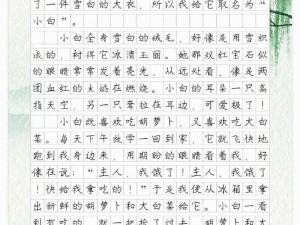 了一件雪白的大衣，所以我给它取名为“
小白”。
小白全身雪白的绒毛，好像是用雪织
成的，衬得它冰清玉丽。她那双红宝石似
的眼睛常常发着亮光，从远处看，像是两
团血红的火焰在燃烧。小白的耳朵一只高
指天空，另一只耷拉在耳边，可爱极了！
小白既喜欢吃胡萝卜，又喜欢吃大白
菜。每天下午放学一回到家，它就飞快地
跑到我身边来，用期盼的眼睛看着我，好
像在说：“主人，我饿了！主人，我饿了
！快给我拿吃的！”于是我便从冰箱里拿
出新鲜的胡萝卜和大白菜给它。小白一看
到有吃的，就一把抢了过去，